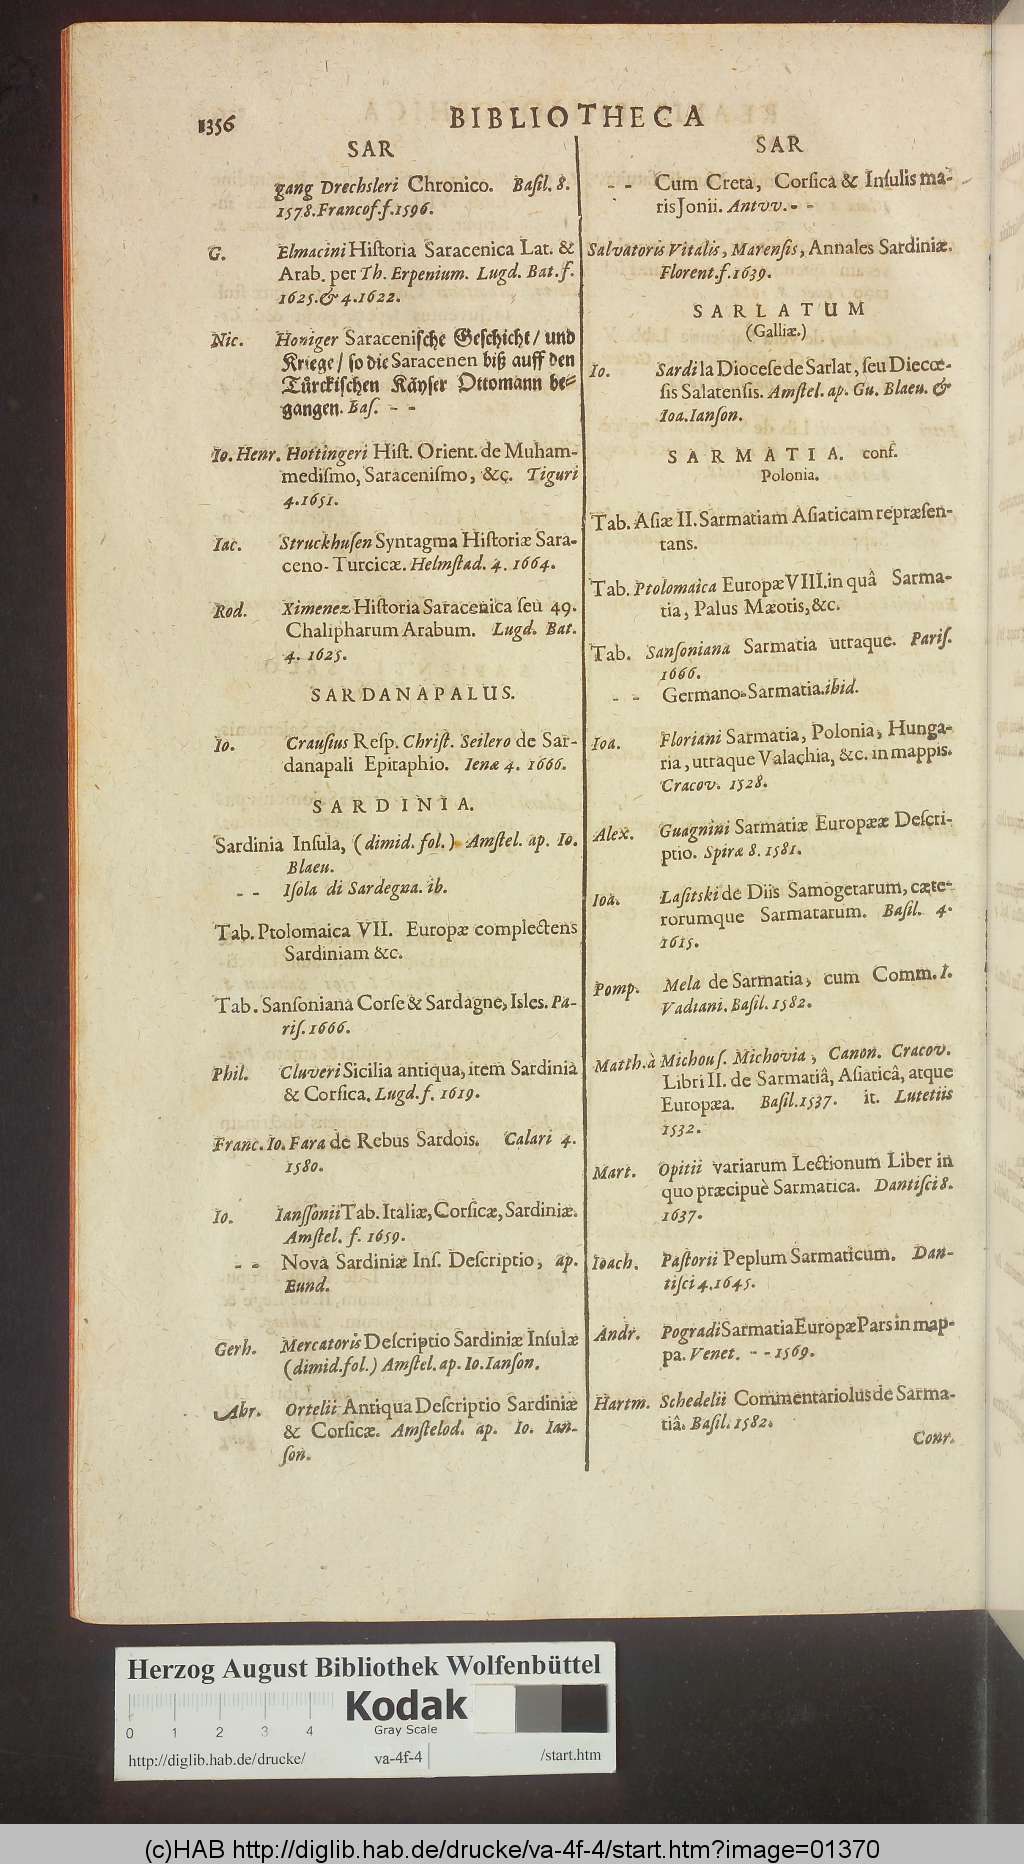 1356
BIBLIOTHECA
SAR
gang Drechsleri Chronico. Baſil. 8.
1578. Francof. f. 1596.
G. Elmacini Hiſtoria Saracenica Lat. &
Arab. per Th. Erpenium. Lugd. Bat. f.
1625. & 4. 1622.
Nic. Honiger Saraceniſche Geſchicht/ und
Kriege/ ſo die Saracenen biß auff den
Türckiſchen Käyſer Ottomann be-
gangen. Baſ. - -
Io. Henr. Hottingeri Hiſt. Orient. de Muham-
mediſmo, Saraceniſmo, &c. Tiguri
4. 1651.
Iac. Struckhuſen Syntagma Hiſtoriæ Sara-
ceno-Turcicæ. Helmſtad. 4. 1664.
Rod. Ximenez Hiſtoria Saracenica ſeu 49.
Chalipharum Arabum. Lugd. Bat.
4. 1625.
SARDANAPALUS.
Io. Crauſius Reſp. Chriſt. Seilero de Sar-
danapali Epitaphio. Ienæ 4. 1666.
SARDINIA.
Sardinia Inſula, (dimid. fol.) Amſtel. ap. Io.
Blaeu.
- - Iſola di Sardegna. ib.
Tab. Ptolomaica VII. Europæ complectens
Sardiniam &c.
Tab. Sanſoniana Corſe & Sardagne, Isles. Pa-
riſ. 1666.
Phil. Cluveri Sicilia antiqua, item Sardinia
& Corſica. Lugd. f. 1619.
Franc. Io. Fara de Rebus Sardois. Calari 4.
1580.
Io. Ianſſonii Tab. Italiæ, Corſicæ, Sardiniæ.
Amſtel. f. 1659.
- - Nova Sardiniæ Inſ. Deſcriptio, ap.
Eund.
Gerh. Mercatoris Deſcriptio Sardiniæ Inſulæ
(dimid. fol.) Amſtel. ap. Io. Ianſon.
Abr. Ortelii Antiqua Deſcriptio Sardiniæ
& Corſicæ. Amſtelod. ap. Io. Ian-
ſon.
SAR
- - Cum Creta, Corſica & Inſulis ma-
ris Jonii. Antvv. - -
Salvatoris Vitalis, Marenſis, Annales Sardiniæ.
Florent. f. 1639.
SARLATUM
(Galliæ.)
Io. Sardi la Dioceſe de Sarlat, ſeu Diecœ-
ſis Salatenſis. Amſtel. ap. Gu. Blaeu. &
Ioa. Ianſon.
SARMATIA. conf.
Polonia.
Tab. Aſiæ II. Sarmatiam Aſiaticam repræſen-
tans.
Tab. Ptolomaica Europæ VIII. in quâ Sarma-
tia, Palus Mæotis, &c.
Tab. Sanſoniana Sarmatia utraque. Pariſ.
1666.
- - Germano-Sarmatia. ibid.
Ioa. Floriani Sarmatia, Polonia, Hunga-
ria, utraque Valachia, &c. in mappis.
Cracov. 1528.
Alex. Guagnini Sarmatiæ Europææ Deſcri-
ptio. Spiræ 8. 1581.
Ioa. Laſitski de Diis Samogetarum, cæte-
rorumque Sarmatarum. Baſil. 4.
1615.
Pomp. Mela de Sarmatia, cum Comm. I.
Vadiani. Baſil. 1582.
Matth. à Michouſ. Michovia, Canon. Cracov.
Libri II. de Sarmatiâ, Aſiaticâ, atque
Europæa. Baſil. 1537. it. Lutetiis
1532.
Mart. Opitii variarum Lectionum Liber in
quo præcipuè Sarmatica. Dantiſci 8.
1637.
Ioach. Paſtorii Peplum Sarmaticum. Dan-
tiſci 4. 1645.
Andr. Pogradi Sarmatia Europæ Pars in map-
pa. Venet. - - 1569.
Hartm. Schedelii Commentariolus de Sarma-
tiâ. Baſil. 1582.
Conr.
Herzog August Bibliothek Wolfenbüttel
0 1 2 3 4
Kodak
Gray Scale
http://diglib.hab.de/drucke/ va-4f-4 /start.htm
(c)HAB http://diglib.hab.de/drucke/va-4f-4/start.htm?image=01370